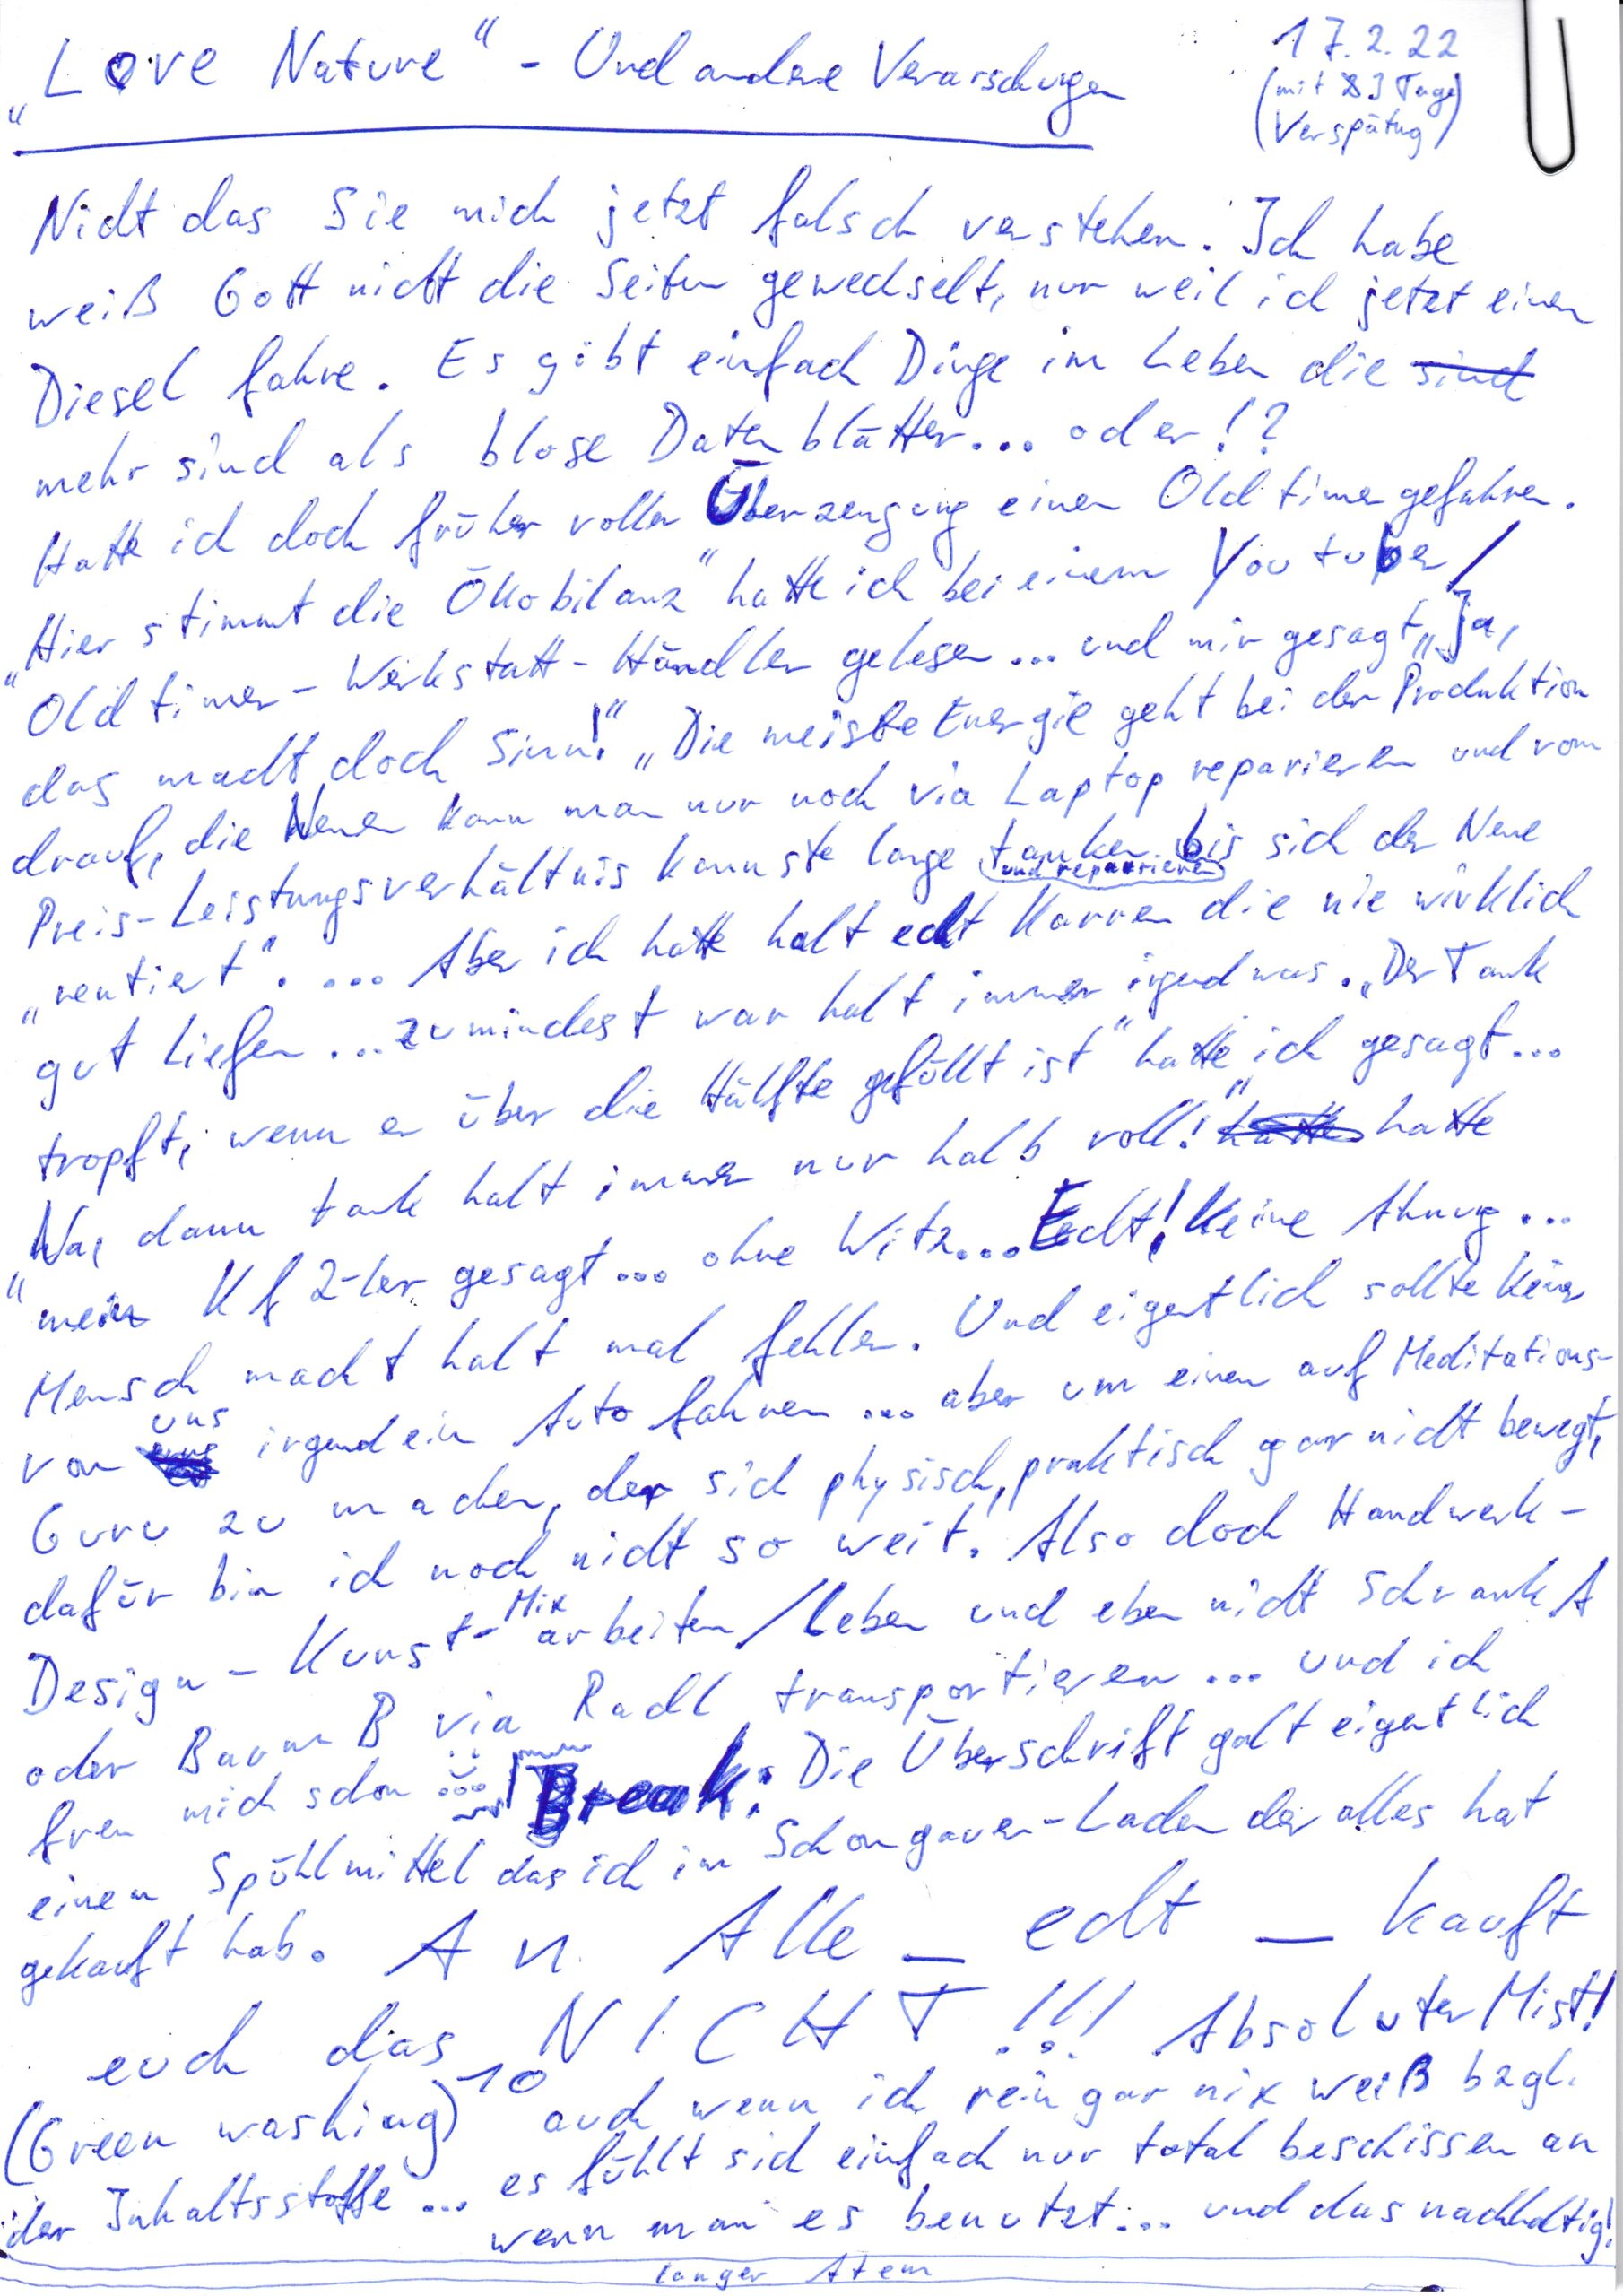 „Love Nature“ - Und andere Verarschungen
17.2.22
(mit 3 Tage)
(Verspätug)
Nicht das Sie mich jetzt falsch verstehen. Ich habe
weiß Gott nicht die Seiten gewechselt, nur weil ich jetzt einen
Diesel fahre. Es gibt einfach Dinge im Leben die sind
mehr sind als blose Datenblätter... oder!?
Hatte ich doch früher voller Überzeugung einen Oldtimer gefahren.
„Hier stimmt die Ökobilanz“ hatte ich bei einem Youtuber/
Oldtimer-Werkstatt-Händler gelesen... und mir gesagt „Ja,
das macht doch Sinn!“ „Die meiste Energie geht bei der Produktion
drauf, die Neuen kann man nur noch via Laptop reparieren und vom
Preis-Leistungsverhältnis kannste lange tanken bis sich der Neue
(und reparieren)
„rentiert“. ... Aber ich hatte halt echt Karren die nie wirklich
gut liefen... zumindest war halt immer irgendwas. „Der Tank
tropft, wenn er über die Hälfte gefüllt ist“ hatte ich gesagt...
„Na, dann tank halt immer nur halb voll!“ hatte hatte
mein Kfz-ler gesagt... ohne Witz... Echt! Keine Ahnung...
Mensch macht halt mal fehler. Und eigentlich sollte keiner
von uns irgendein Auto fahren... aber um einen auf Meditations-
Guru zu machen, der sich physisch, praktisch gar nicht bewegt,
dafür bin ich noch nicht so weit. Also doch Handwerk-
Design-Kunst-Mix arbeiten/leben und eben nicht Schrank A
oder Baum B via Radl transportieren... und ich
freu mich schon ... Break: Die Überschrift galt eigentlich
einem Spühlmittel das ich im Schongauer-Laden der alles hat
gekauft hab. An Alle _ echt _ kauft
euch das NICHT!!! Absoluter Mist!
(Green washing)¹⁰ auch wenn ich rein gar nix weiß bzgl.
der Inhaltsstoffe... es fühlt sich einfach nur total beschissen an
wenn man es benutzt... und das nachhaltig!
langer Atem